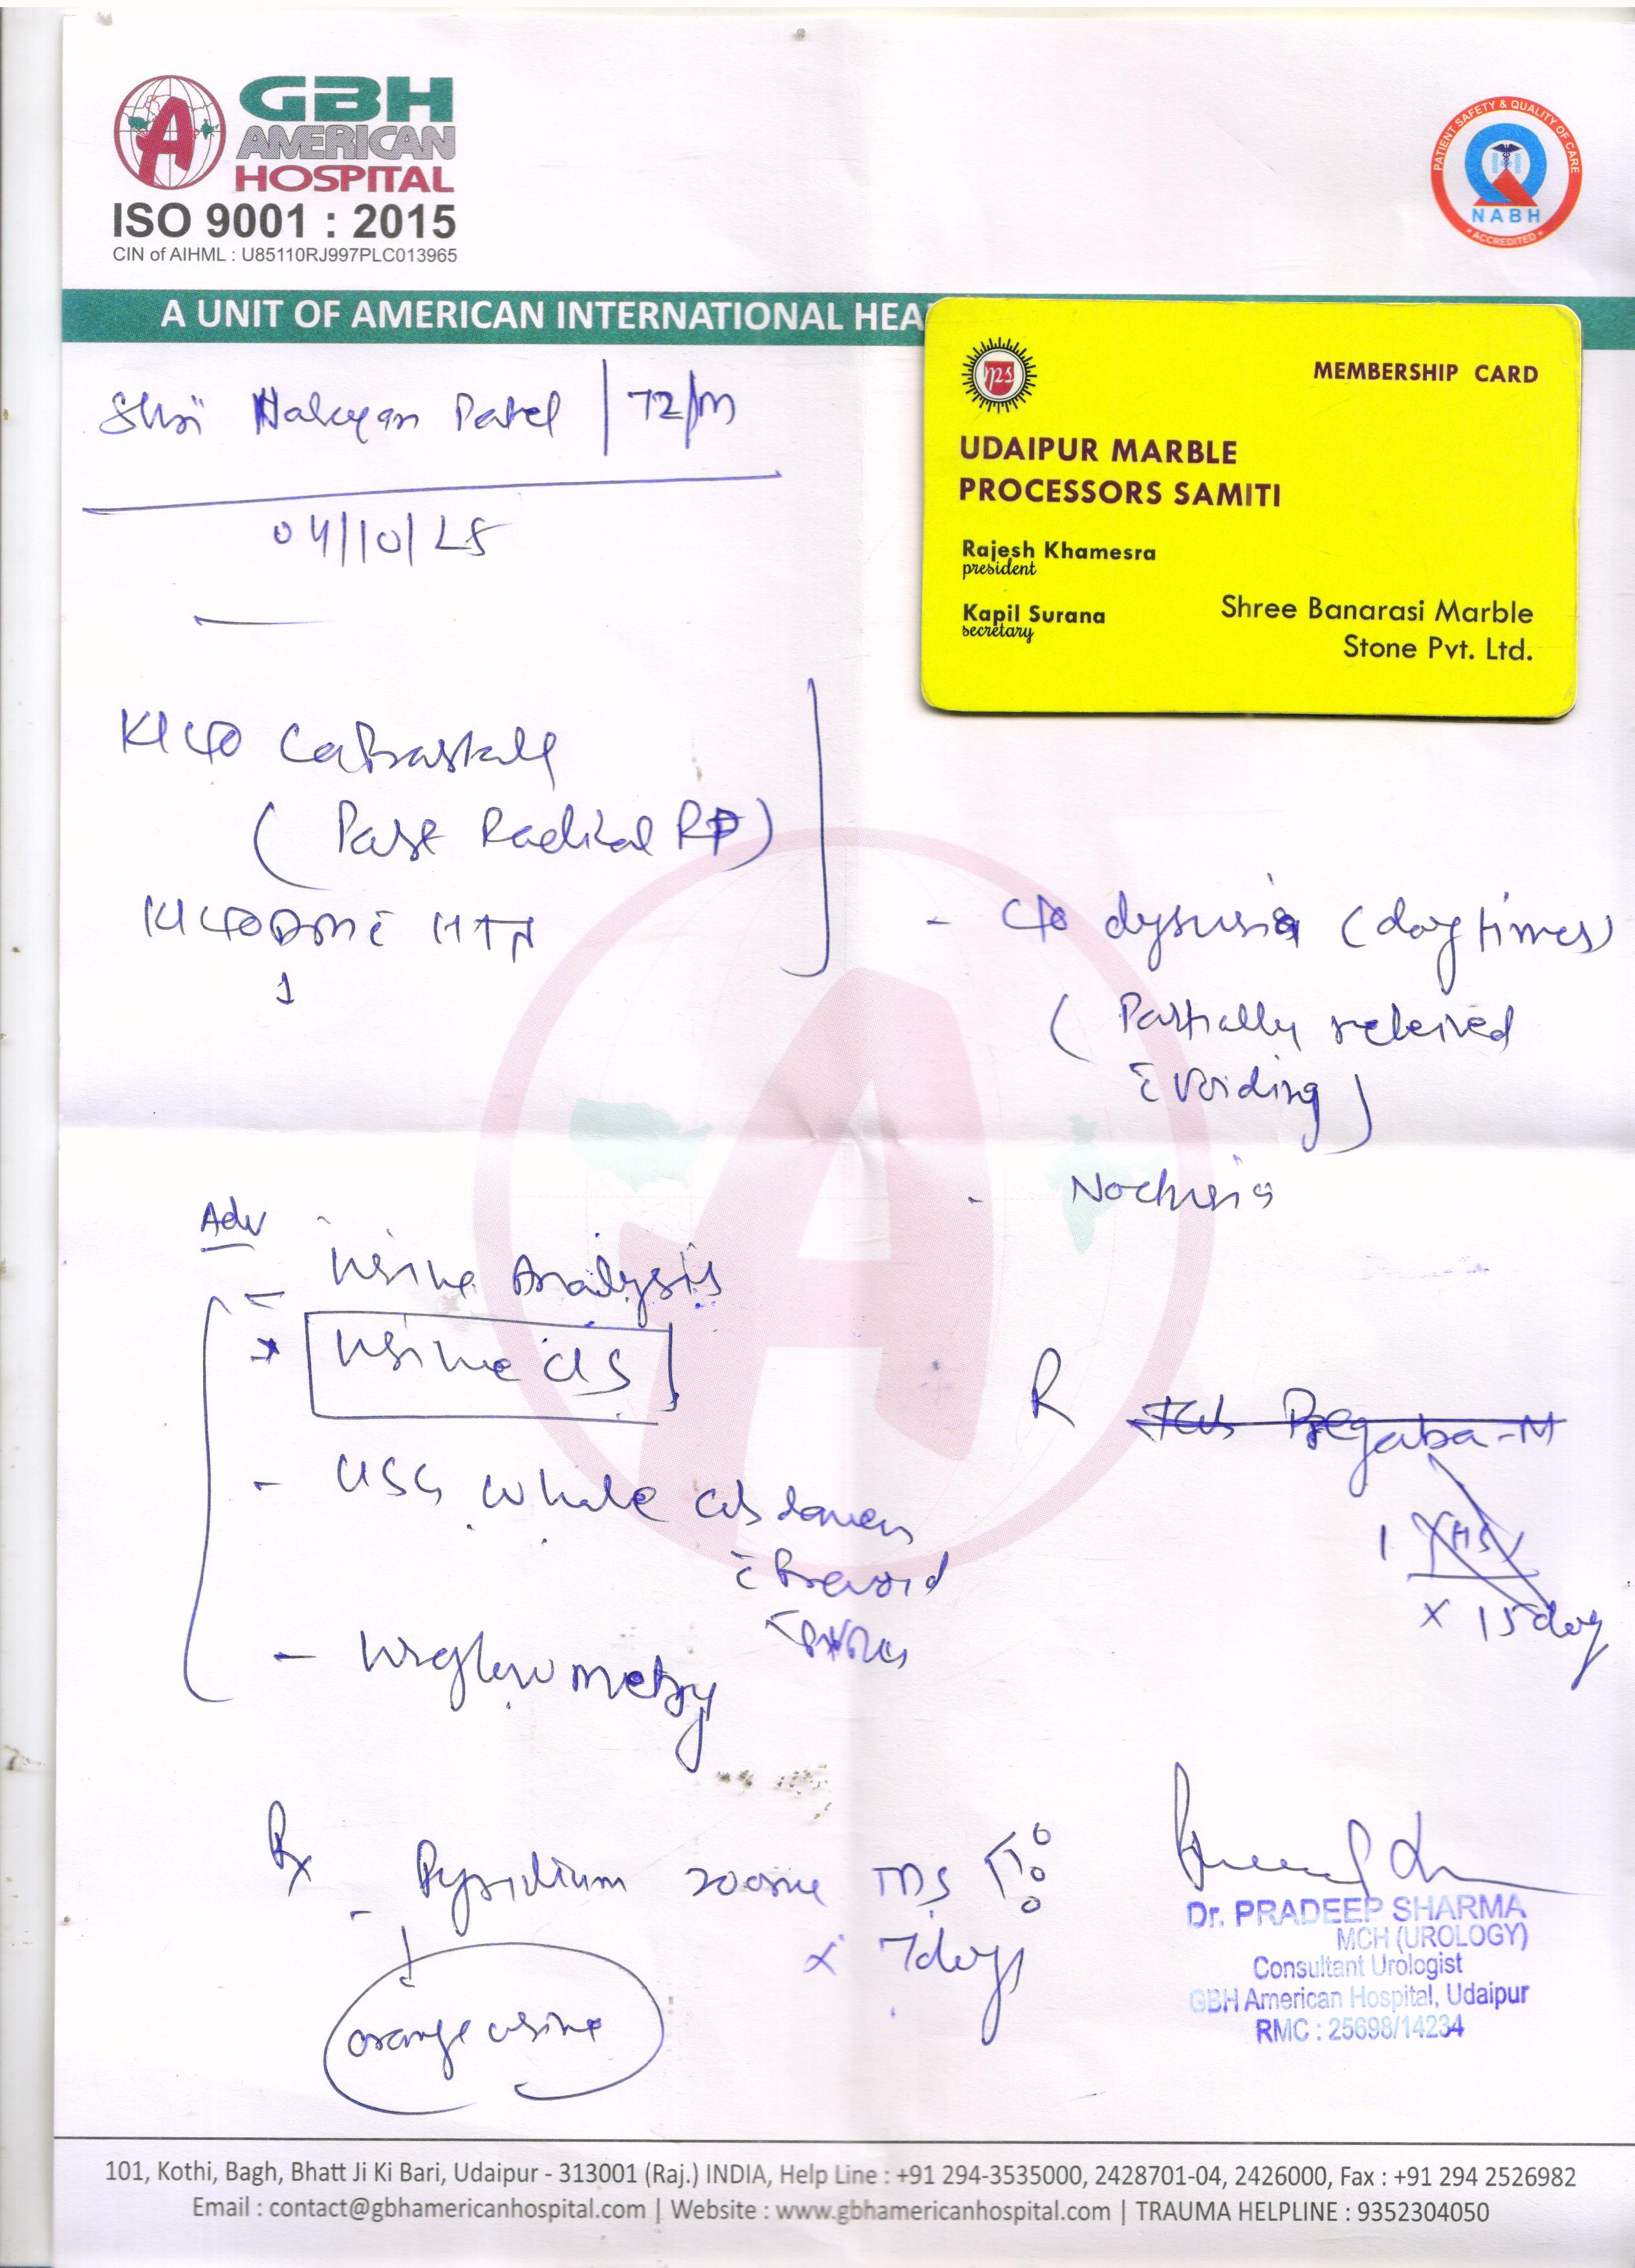 GBH
AMERICAN
HOSPITAL
ISO 9001 : 2015
CIN of AIHML : U85110RJ997PLC013965
PATIENT SAFETY & QUALITY OF CARE
NABH
ACCREDITED
A UNIT OF AMERICAN INTERNATIONAL HEA
MEMBERSHIP CARD
UDAIPUR MARBLE
PROCESSORS SAMITI
Rajesh Khamesra
president
Kapil Surana
secretary
Shree Banarasi Marble
Stone Pvt. Ltd.
Shri Patel | 72/M
04/10/25
K/C/O Ca Prostate
(Post Radical RP)
K/C/O DM c̄ HTN
- C/o dysuria (day times)
(Partially relieved
c̄ voiding)
- Nocturia
Adv
- Urine Analysis
* Urine C/S
- USG whole abdomen
c̄ Prevoid
c̄ PVRU
- Uroflowmetry
R Tab Pregaba-M
1 X HS
x 15 day
Rx
- Pyridium 200mg TDS
x 7days
orange urine
Dr. PRADEEP SHARMA
MCH (UROLOGY)
Consultant Urologist
GBH American Hospital, Udaipur
RMC : 25698/14234
101, Kothi, Bagh, Bhatt Ji Ki Bari, Udaipur - 313001 (Raj.) INDIA, Help Line : +91 294-3535000, 2428701-04, 2426000, Fax : +91 294 2526982
Email : contact@gbhamericanhospital.com | Website : www.gbhamericanhospital.com | TRAUMA HELPLINE : 9352304050